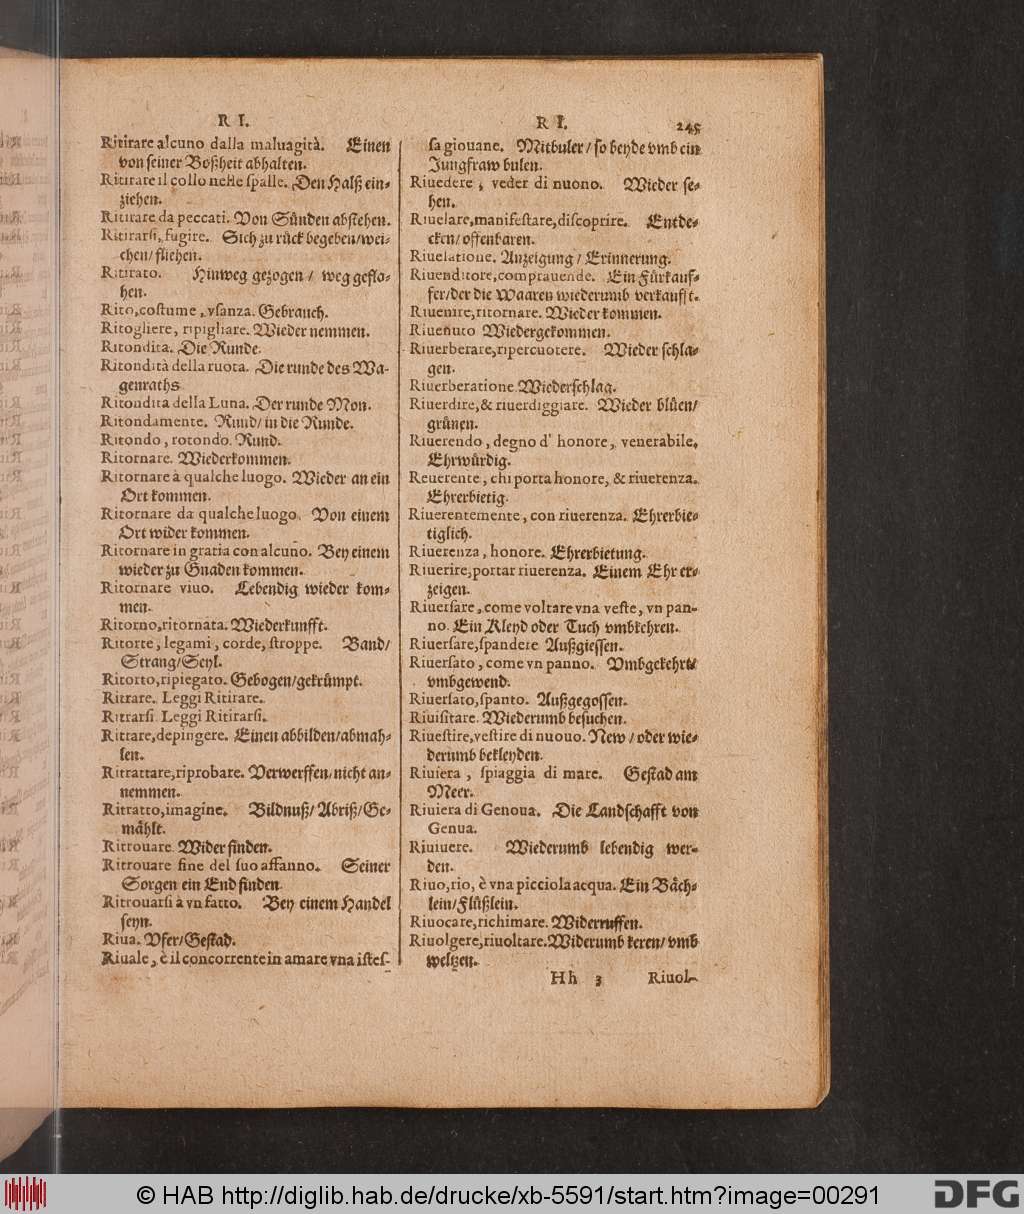 R I.
Ritirare alcuno dalla maluagità. Einen
von seiner Boßheit abhalten.
Ritirare il collo nelle spalle. Den Halß ein-
ziehen.
Ritirare da peccati. Von Sünden abstehen.
Ritirarsi, fugire. Sich zu rück begeben/wei-
chen/fliehen.
Ritirato. Hinweg gezogen / weg geflo-
hen.
Rito, costume, vsanza. Gebrauch.
Ritogliere, ripigliare. Wieder nemmen.
Ritondita. Die Runde.
Ritondità della ruota. Die runde des Wa-
genraths
Ritondita della Luna. Der runde Mon.
Ritondamente. Rund/ in die Runde.
Ritondo, rotondo. Rund.
Ritornare. Wiederkommen.
Ritornare à qualche luogo. Wieder an ein
Ort kommen.
Ritornare da qualche luogo. Von einem
Ort wider kommen.
Ritornare in gratia con alcuno. Bey einem
wieder zu Gnaden kommen.
Ritornare viuo. Lebendig wieder kom-
men.
Ritorno, ritornata. Wiederkunfft.
Ritorte, legami, corde, stroppe. Band/
Strang/Seyl.
Ritorto, ripiegato. Gebogen/gekrümpt.
Ritrare. Leggi Ritirare.
Ritrarsi. Leggi Ritirarsi.
Rittare, depingere. Einen abbilden/abmah-
len.
Ritrattare, riprobare. Verwerffen/nicht an-
nemmen.
Ritratto, imagine. Bildnuß/ Abriß/Ge-
mählt.
Ritrouare. Wider finden.
Ritrouare fine del suo affanno. Seiner
Sorgen ein End finden.
Ritrouarsi à vn fatto. Bey einem Handel
seyn.
Riua. Vfer/Gestad.
Riuale, è il concorrente in amare vna istes-
R I. 245
sa giouane. Mitbuler / so beyde vmb ein
Jungfraw bulen.
Riuedere, veder di nuono. Wieder se-
hen.
Riuelare, manifestare, discoprire. Entde-
cken/offenbaren.
Riuelatione. Anzeigung / Erinnerung.
Riuenditore, comprauende. Ein Fürkauf-
fer/der die Waaren wiederumb verkaufft.
Riuenire, ritornare. Wieder kommen.
Riuenuto Wiedergekommen.
Riuerberare, ripercuotere. Wieder schla-
gen.
Riuerberatione Wiederschlag.
Riuerdire, & riuerdiggiare. Wieder blüen/
grünen.
Riuerendo, degno d' honore, venerabile,
Ehrwürdig.
Reuerente, chi porta honore, & riuerenza.
Ehrerbietig.
Riuerentemente, con riuerenza. Ehrerbie-
tiglich.
Riuerenza, honore. Ehrerbietung.
Riuerire, portar riuerenza. Einem Ehr er-
zeigen.
Riuersare, come voltare vna veste, vn pan-
no. Ein Kleyd oder Tuch vmbkehren.
Riuersare, spandere Außgiessen.
Riuersato, come vn panno. Vmbgekehrt/
vmbgewend.
Riuersato, spanto. Außgegossen.
Riuisitare. Wiederumb besuchen.
Riuestire, vestire di nuouo. New / oder wie-
derumb bekleyden.
Riuiera, spiaggia di mare. Gestad am
Meer.
Riuiera di Genoua. Die Landschafft von
Genua.
Riuiuere. Wiederumb lebendig wer-
den.
Riuo, rio, è vna picciola acqua. Ein Bäch-
lein/Flüßlein.
Riuocare, richimare. Widerruffen.
Riuolgere, riuoltare. Widerumb keren/ vmb
weltzen.
Hh 3 Riuol-
© HAB http://diglib.hab.de/drucke/xb-5591/start.htm?image=00291
DFG